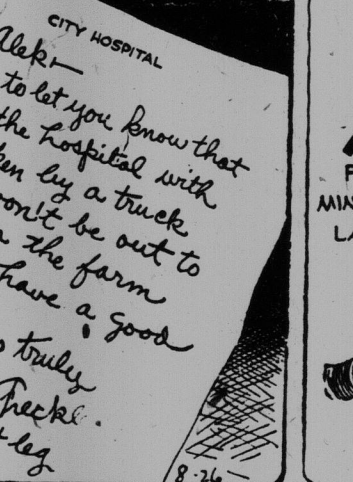 CITY HOSPITAL
Alek—
to let you know that
the hospital with
by a truck
won't be out to
the farm
have a good
truly
leg
8-26—
MIN
LA